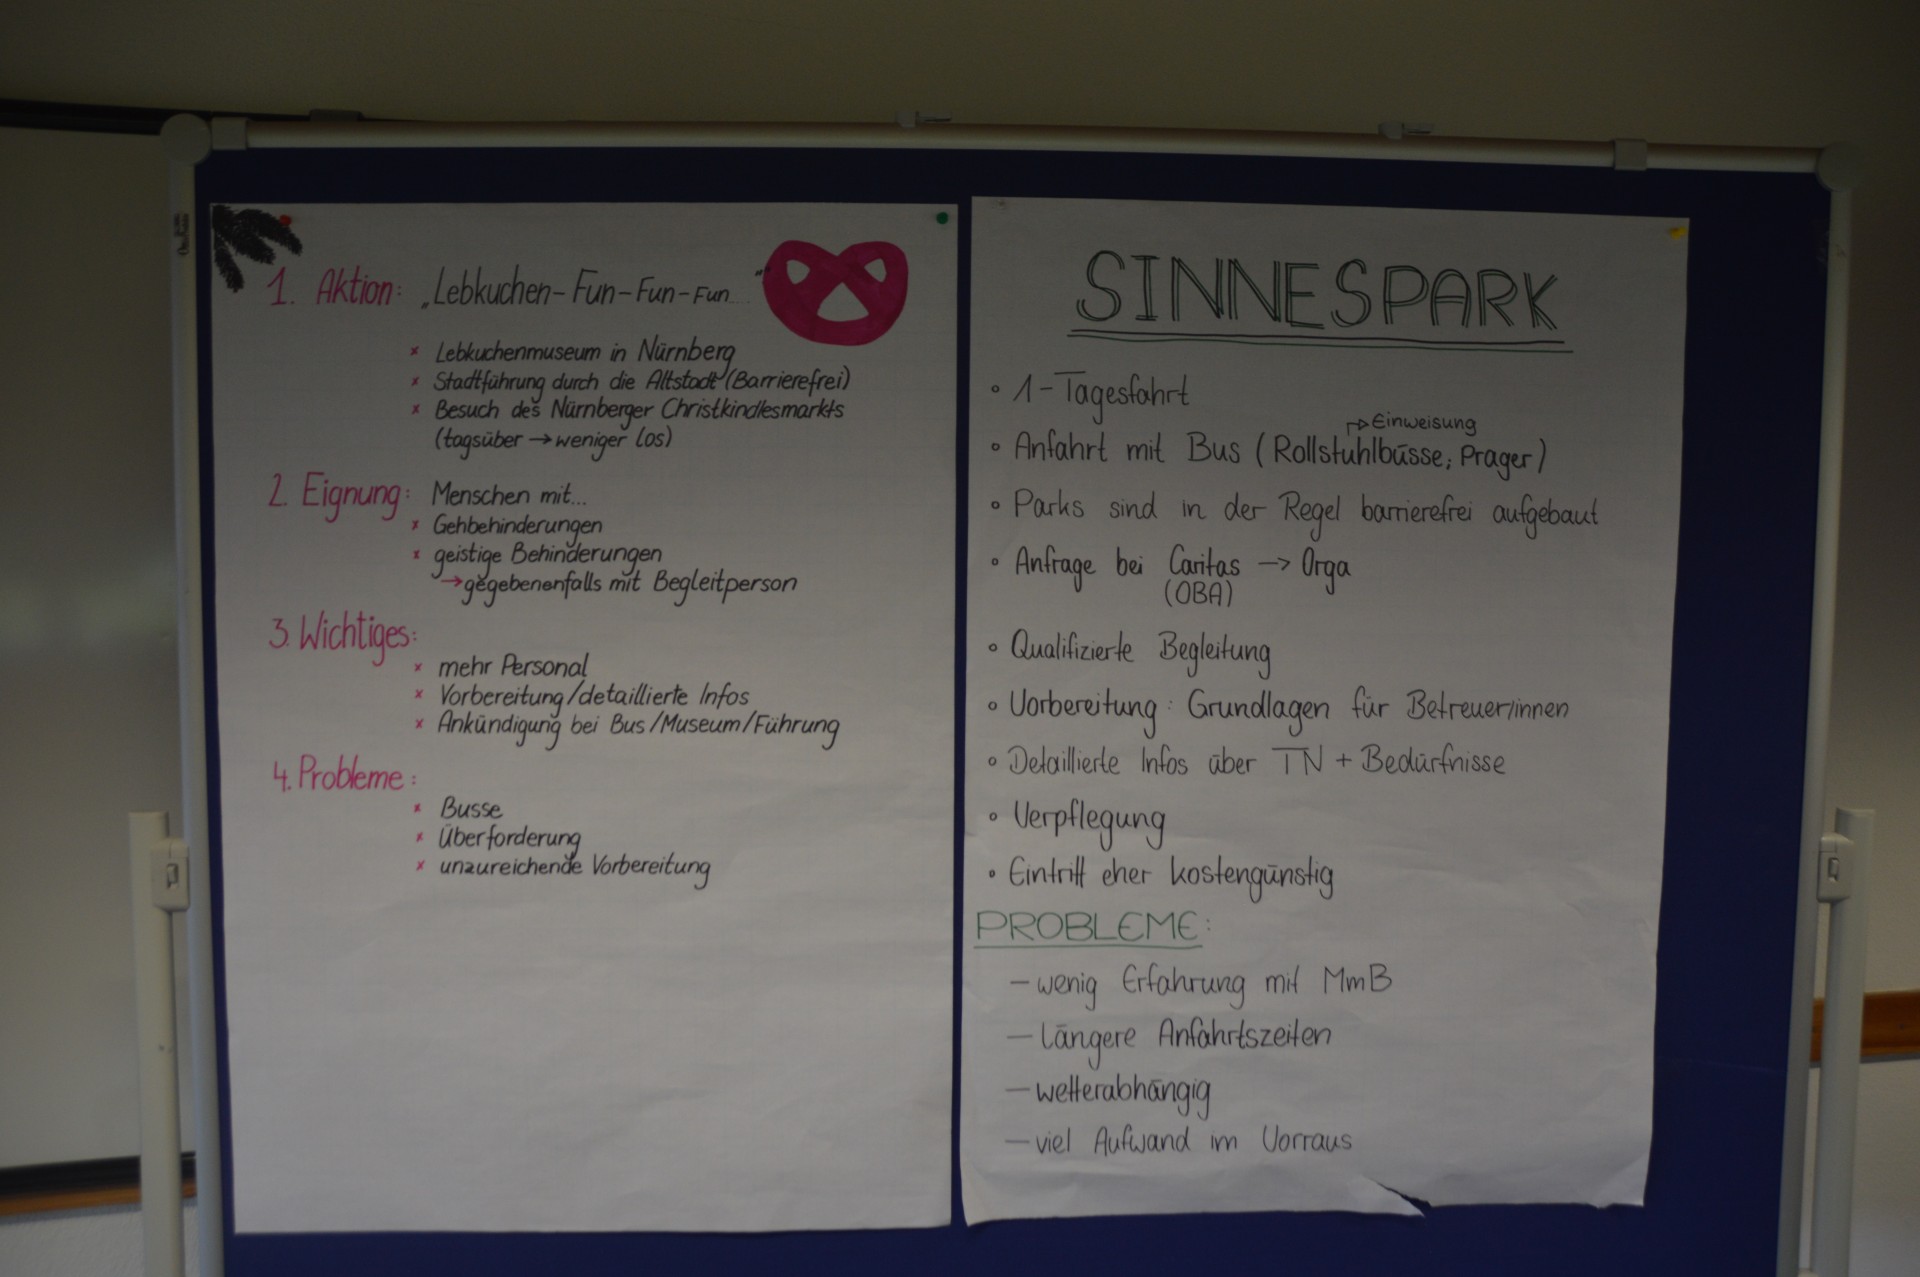 1. Aktion: „Lebkuchen-Fun-Fun-Fun....."
× Lebkuchenmuseum in Nürnberg
× Stadtführung durch die Altstadt (Barrierefrei)
× Besuch des Nürnberger Christkindlesmarkts
(tagsüber → weniger los)
2. Eignung: Menschen mit...
× Gehbehinderungen
× geistige Behinderungen
→ gegebenenfalls mit Begleitperson
3. Wichtiges:
× mehr Personal
× Vorbereitung/detaillierte Infos
× Ankündigung bei Bus/Museum/Führung
4. Probleme:
× Busse
× Überforderung
× unzureichende Vorbereitung
SINNESPARK
• 1-Tagesfahrt
→ Einweisung
• Anfahrt mit Bus (Rollstuhlbüsse; Prager)
• Parks sind in der Regel barrierefrei aufgebaut
• Anfrage bei Caritas → Orga
(OBA)
• Qualifizierte Begleitung
• Vorbereitung: Grundlagen für Betreuer/innen
• Detaillierte Infos über TN + Bedürfnisse
• Verpflegung
• Eintritt eher kostengünstig
PROBLEME:
– wenig Erfahrung mit MmB
– längere Anfahrtszeiten
– wetterabhängig
– viel Aufwand im Vorraus